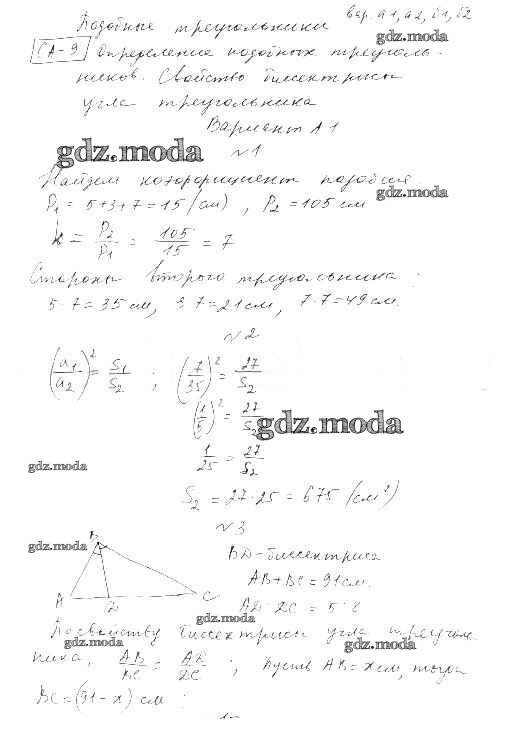 Подобные треугольники вар. А1, А2, Б1, Б2
gdz.moda
СА-9 Определение подобных треуголь-
ников. Свойство биссектрисы
угла треугольника
Вариант А1
gdz.moda
№1
Найдем коэффициент подобия
gdz.moda
P₁ = 5+3+7=15 (см), P₂ = 105 см
k = P₂/P₁ = 105/15 = 7
Стороны второго треугольника:
5·7=35 см, 3·7=21 см, 7·7=49 см.
№2
(a₁/a₂)² = S₁/S₂ ; (7/35)² = 27/S₂
(1/5)² = 27/S₂
gdz.moda
1/25 = 27/S₂
gdz.moda
S₂ = 27·25 = 675 (см²)
№3
gdz.moda
B
BD-биссектриса
AB+BC=91 см.
A D C
AD:DC = 5:8
gdz.moda
По свойству биссектрисы угла треуголь-
gdz.moda
ника, AB/BC = AD/DC ; Пусть AB=x см, тогда
BC=(91-x) см
gdz.moda